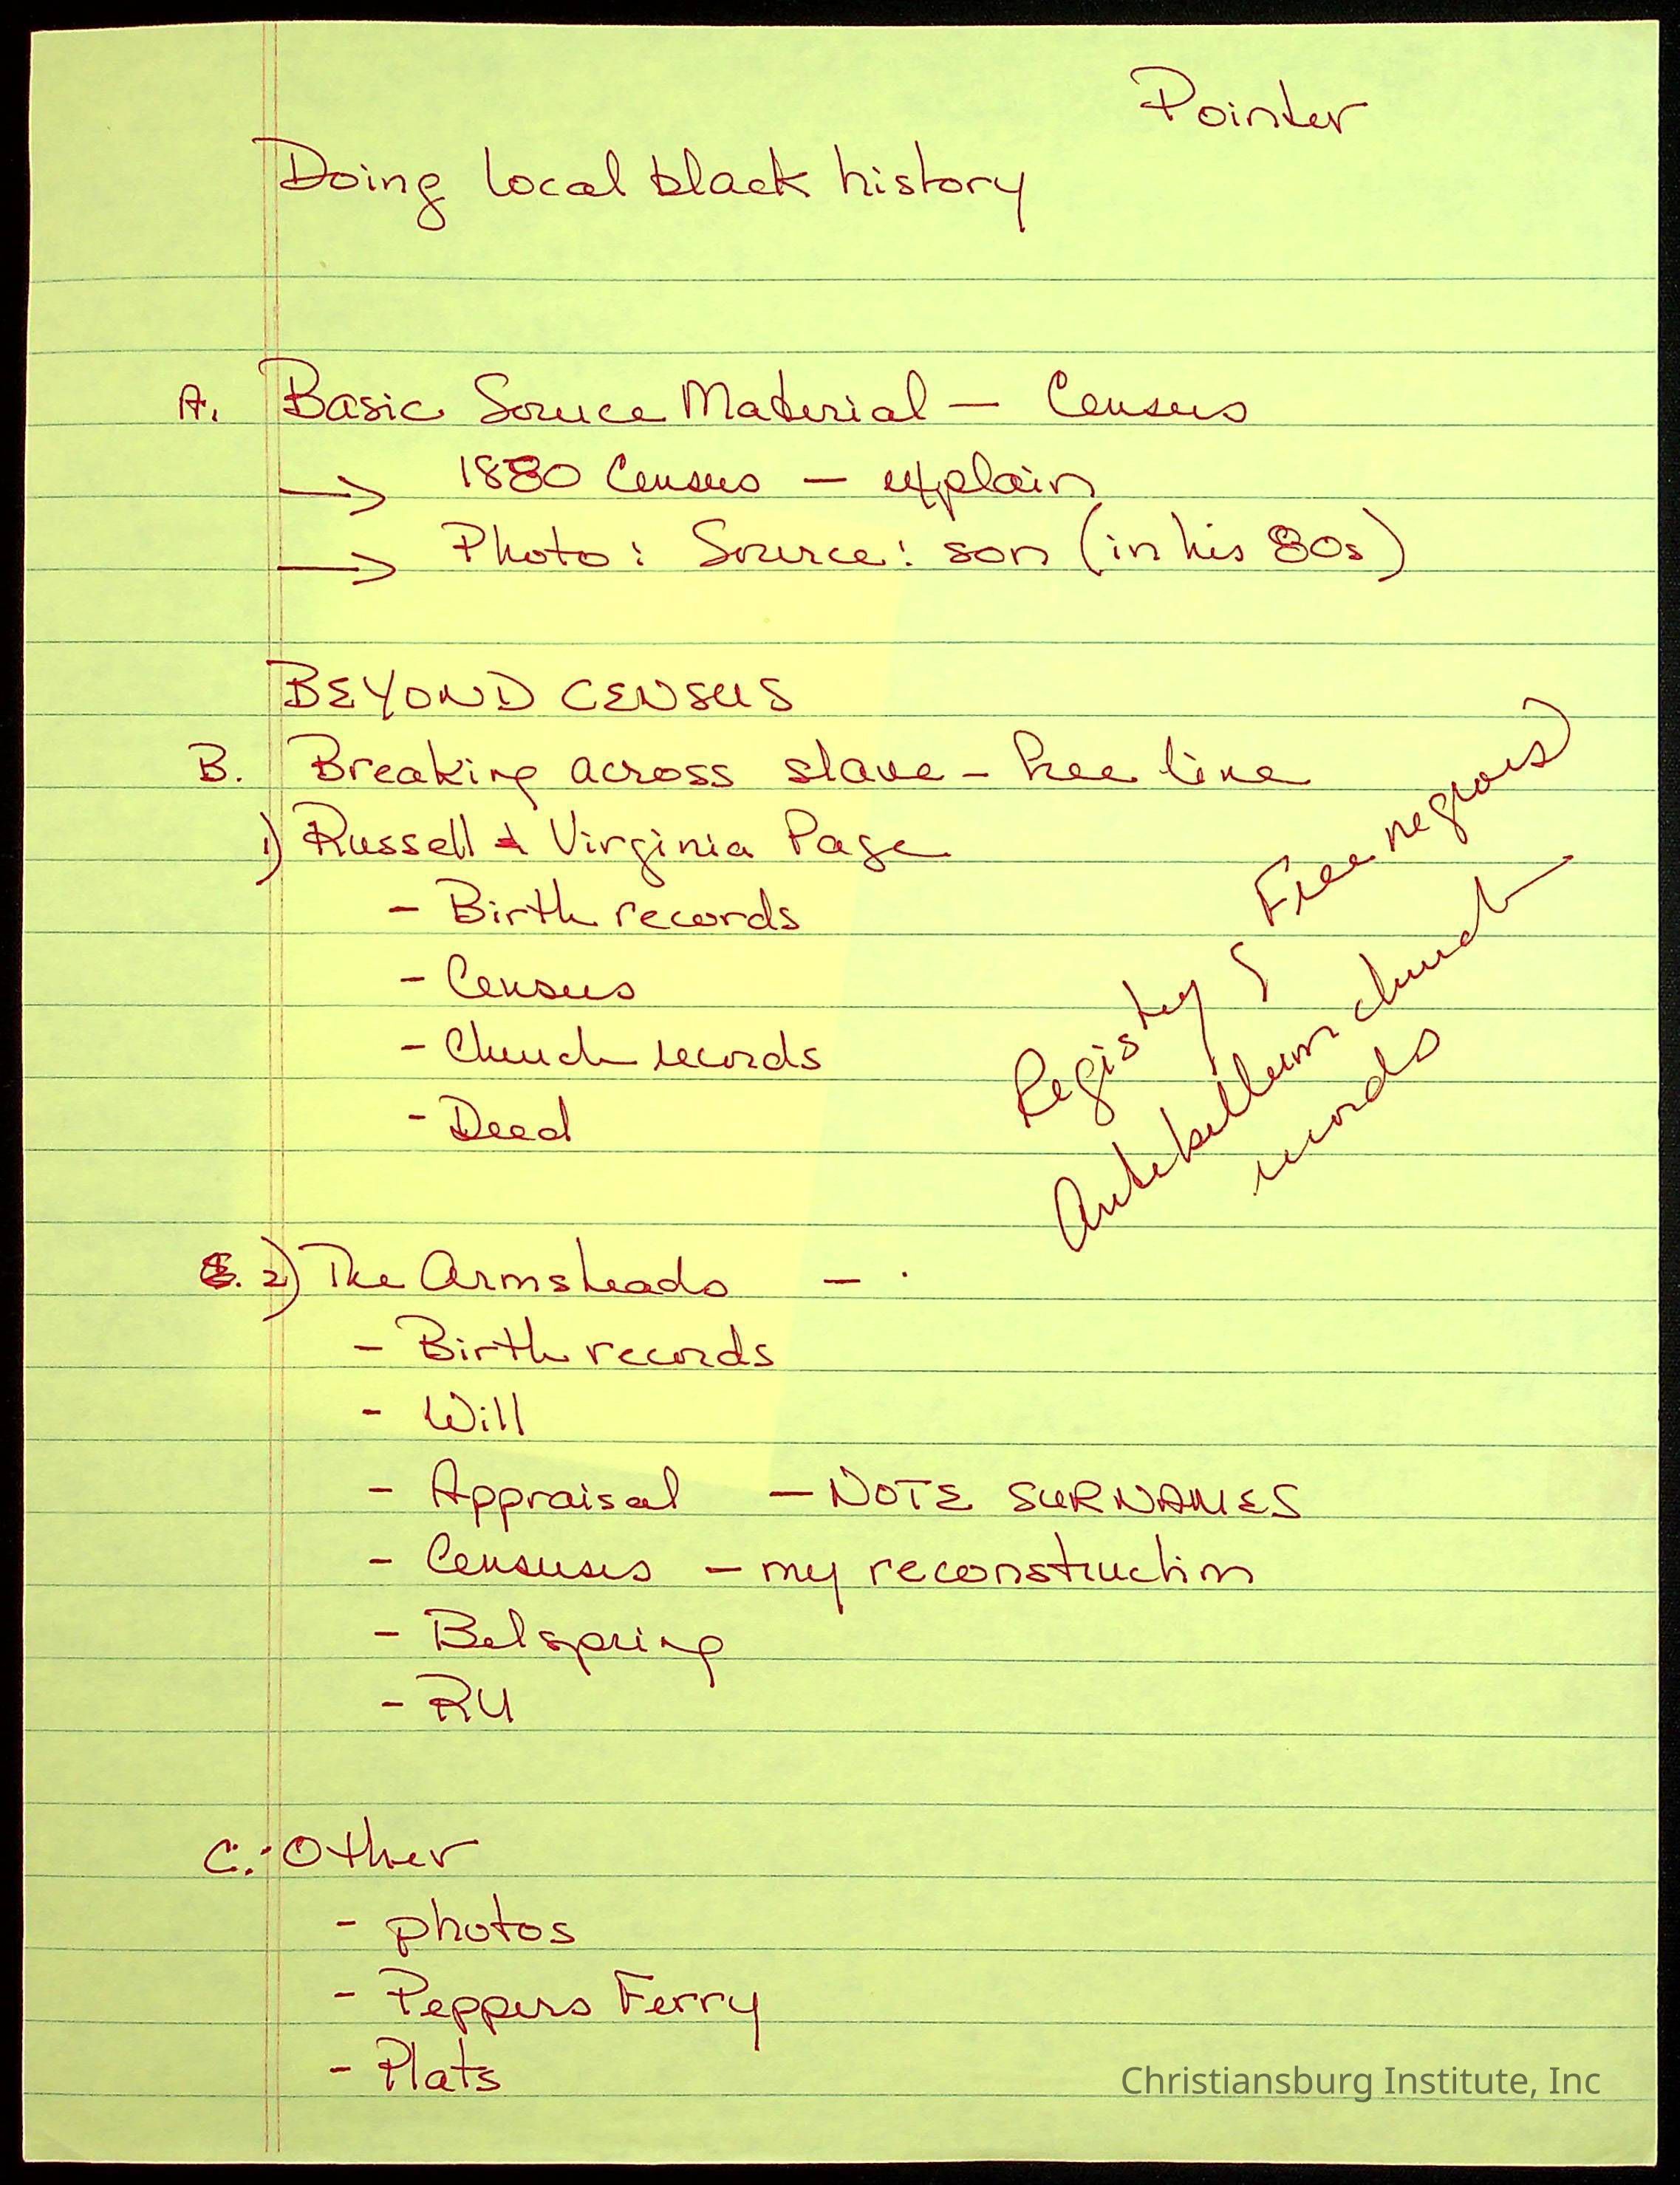 Pointer
Doing local black history
A. Basic Source Material — Census
→ 1880 Census — explain
→ Photo: Source: son (in his 80s)
BEYOND CENSUS
B. Breaking across slave - free line
1) Russell & Virginia Page
- Birth records
- Census
- Church records
- Deed
Registry of Free negroes
Antebellum church
records
2) The Armsteads — .
- Birth records
- Will
- Appraisal — NOTE SURNAMES
- Censuses — my reconstruction
- Belspring
- RU
C. Other
- photos
- Peppers Ferry
- Plats
Christiansburg Institute, Inc